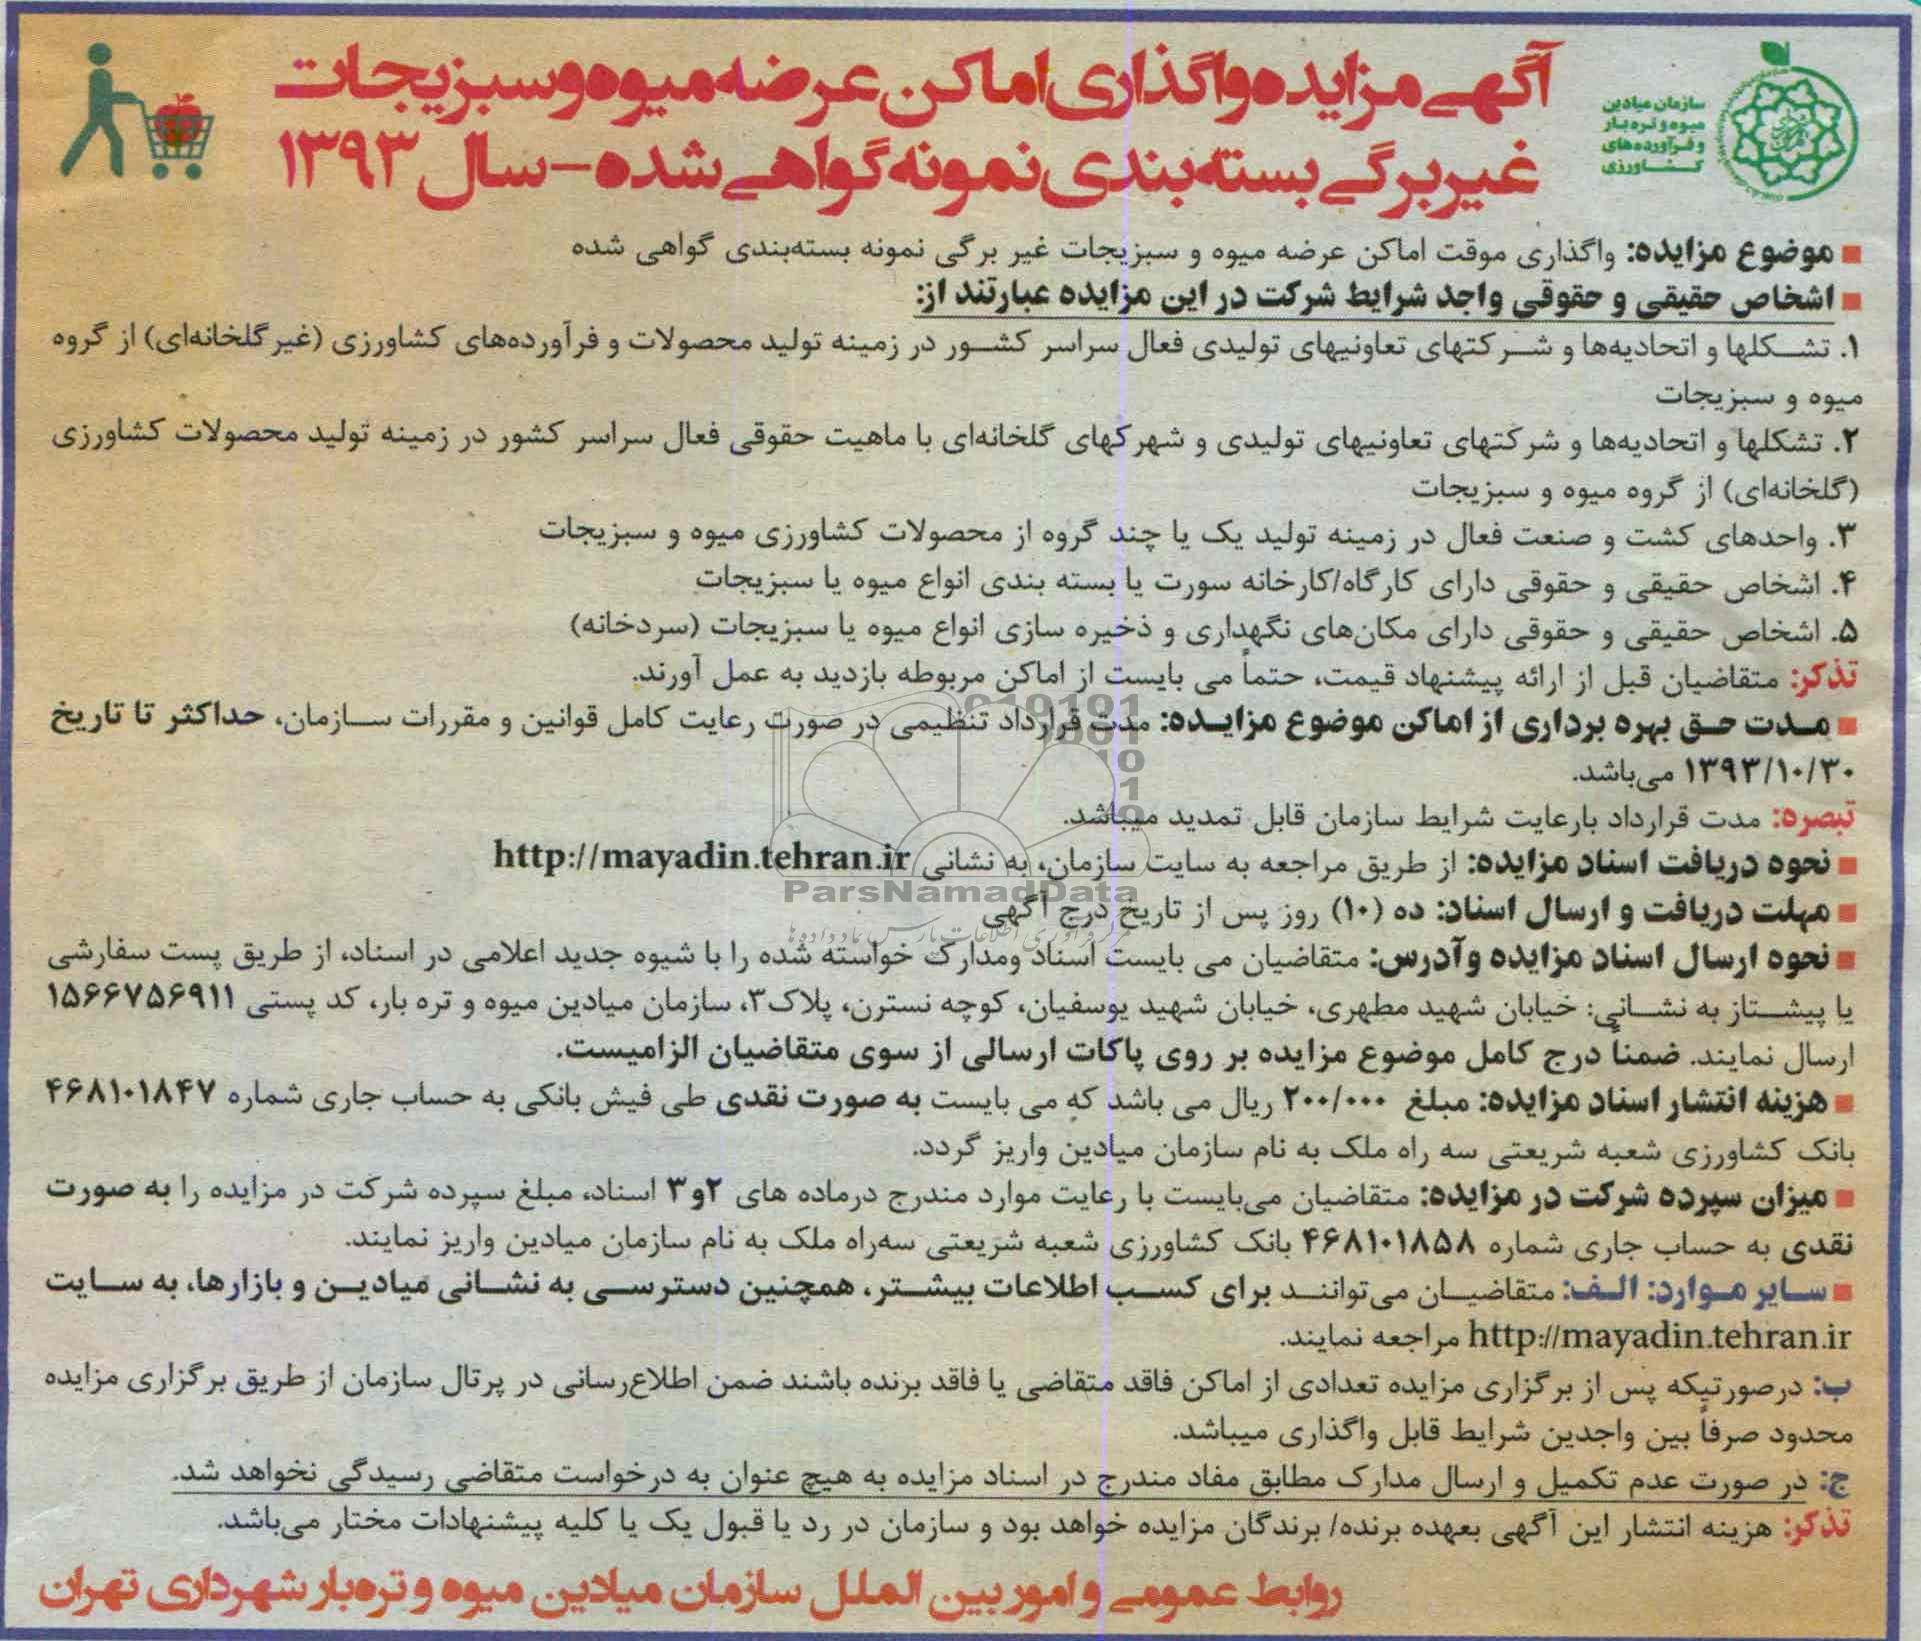 سازمان میادین
میوه و تره بار
و فرآورده‌های
کشاورزی
آگهی مزایده واگذاری اماکن عرضه میوه و سبزیجات
غیر برگی بسته بندی نمونه گواهی شده - سال ۱۳۹۳
■ موضوع مزایده: واگذاری موقت اماکن عرضه میوه و سبزیجات غیر برگی نمونه بسته‌بندی گواهی شده
■ اشخاص حقیقی و حقوقی واجد شرایط شرکت در این مزایده عبارتند از:
۱. تشکلها و اتحادیه‌ها و شرکتهای تعاونیهای تولیدی فعال سراسر کشور در زمینه تولید محصولات و فرآورده‌های کشاورزی (غیر گلخانه‌ای) از گروه
میوه و سبزیجات
۲. تشکلها و اتحادیه‌ها و شرکتهای تعاونیهای تولیدی و شهرکهای گلخانه‌ای با ماهیت حقوقی فعال سراسر کشور در زمینه تولید محصولات کشاورزی
(گلخانه‌ای) از گروه میوه و سبزیجات
۳. واحدهای کشت و صنعت فعال در زمینه تولید یک یا چند گروه از محصولات کشاورزی میوه و سبزیجات
۴. اشخاص حقیقی و حقوقی دارای کارگاه/کارخانه سورت یا بسته بندی انواع میوه یا سبزیجات
۵. اشخاص حقیقی و حقوقی دارای مکان‌های نگهداری و ذخیره سازی انواع میوه یا سبزیجات (سردخانه)
تذکر: متقاضیان قبل از ارائه پیشنهاد قیمت، حتماً می بایست از اماکن مربوطه بازدید به عمل آورند.
■ مدت حق بهره برداری از اماکن موضوع مزایده: مدت قرارداد تنظیمی در صورت رعایت کامل قوانین و مقررات سازمان، حداکثر تا تاریخ
۱۳۹۳/۱۰/۳۰ می‌باشد.
تبصره: مدت قرارداد بارعایت شرایط سازمان قابل تمدید میباشد.
■ نحوه دریافت اسناد مزایده: از طریق مراجعه به سایت سازمان، به نشانی http://mayadin.tehran.ir
ParsNamadData
■ مهلت دریافت و ارسال اسناد: ده (۱۰) روز پس از تاریخ درج آگهی
■ نحوه ارسال اسناد مزایده وآدرس: متقاضیان می بایست اسناد ومدارک خواسته شده را با شیوه جدید اعلامی در اسناد، از طریق پست سفارشی
یا پیشتاز به نشانی: خیابان شهید مطهری، خیابان شهید یوسفیان، کوچه نسترن، پلاک۳، سازمان میادین میوه و تره بار، کد پستی ۱۵۶۶۷۵۶۹۱۱
ارسال نمایند. ضمناً درج کامل موضوع مزایده بر روی پاکات ارسالی از سوی متقاضیان الزامیست.
■ هزینه انتشار اسناد مزایده: مبلغ ۲۰۰/۰۰۰ ریال می باشد که می بایست به صورت نقدی طی فیش بانکی به حساب جاری شماره ۴۶۸۱۰۱۸۴۷
بانک کشاورزی شعبه شریعتی سه راه ملک به نام سازمان میادین واریز گردد.
■ میزان سپرده شرکت در مزایده: متقاضیان می‌بایست با رعایت موارد مندرج درماده های ۲و۳ اسناد، مبلغ سپرده شرکت در مزایده را به صورت
نقدی به حساب جاری شماره ۴۶۸۱۰۱۸۵۸ بانک کشاورزی شعبه شریعتی سه‌راه ملک به نام سازمان میادین واریز نمایند.
■ سایر موارد: الف: متقاضیان می‌توانند برای کسب اطلاعات بیشتر، همچنین دسترسی به نشانی میادین و بازارها، به سایت
http://mayadin.tehran.ir مراجعه نمایند.
ب: درصورتیکه پس از برگزاری مزایده تعدادی از اماکن فاقد متقاضی یا فاقد برنده باشند ضمن اطلاع‌رسانی در پرتال سازمان از طریق برگزاری مزایده
محدود صرفاً بین واجدین شرایط قابل واگذاری میباشد.
ج: در صورت عدم تکمیل و ارسال مدارک مطابق مفاد مندرج در اسناد مزایده به هیچ عنوان به درخواست متقاضی رسیدگی نخواهد شد.
تذکر: هزینه انتشار این آگهی بعهده برنده/ برندگان مزایده خواهد بود و سازمان در رد یا قبول یک یا کلیه پیشنهادات مختار می‌باشد.
روابط عمومی و امور بین الملل سازمان میادین میوه و تره‌بار شهرداری تهران